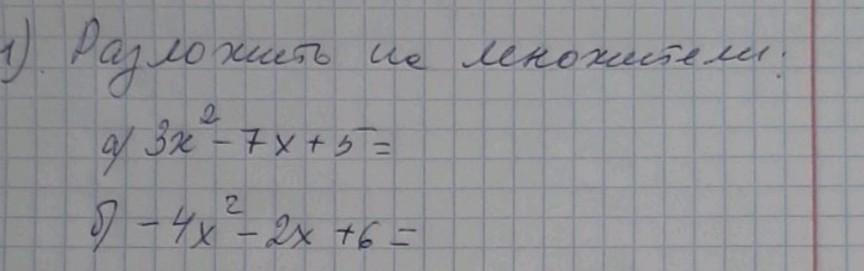 1). Разложить на множители:
а) 3x² - 7x + 5 =
б) - 4x² - 2x + 6 =